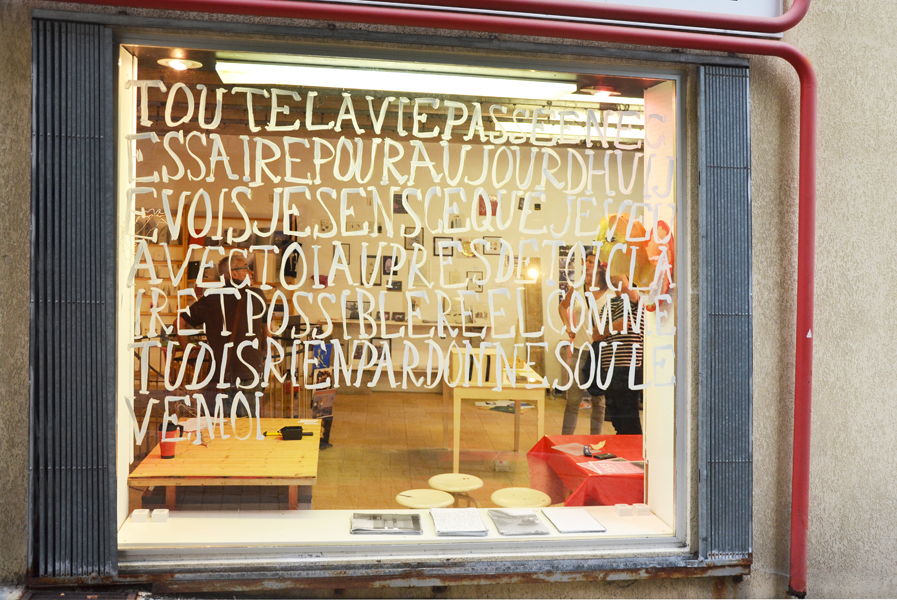 TOUTELAVIEPASSÉENEC
ESSAIREPOURAUJOURDHUIJ
EVOISJESENSCEQUEJEVEU
AVECTOIAUPRESDETOICLA
IRETPOSSIBLERÉELCOMME
TUDISRIENPARDONNESOULE
VEMOI